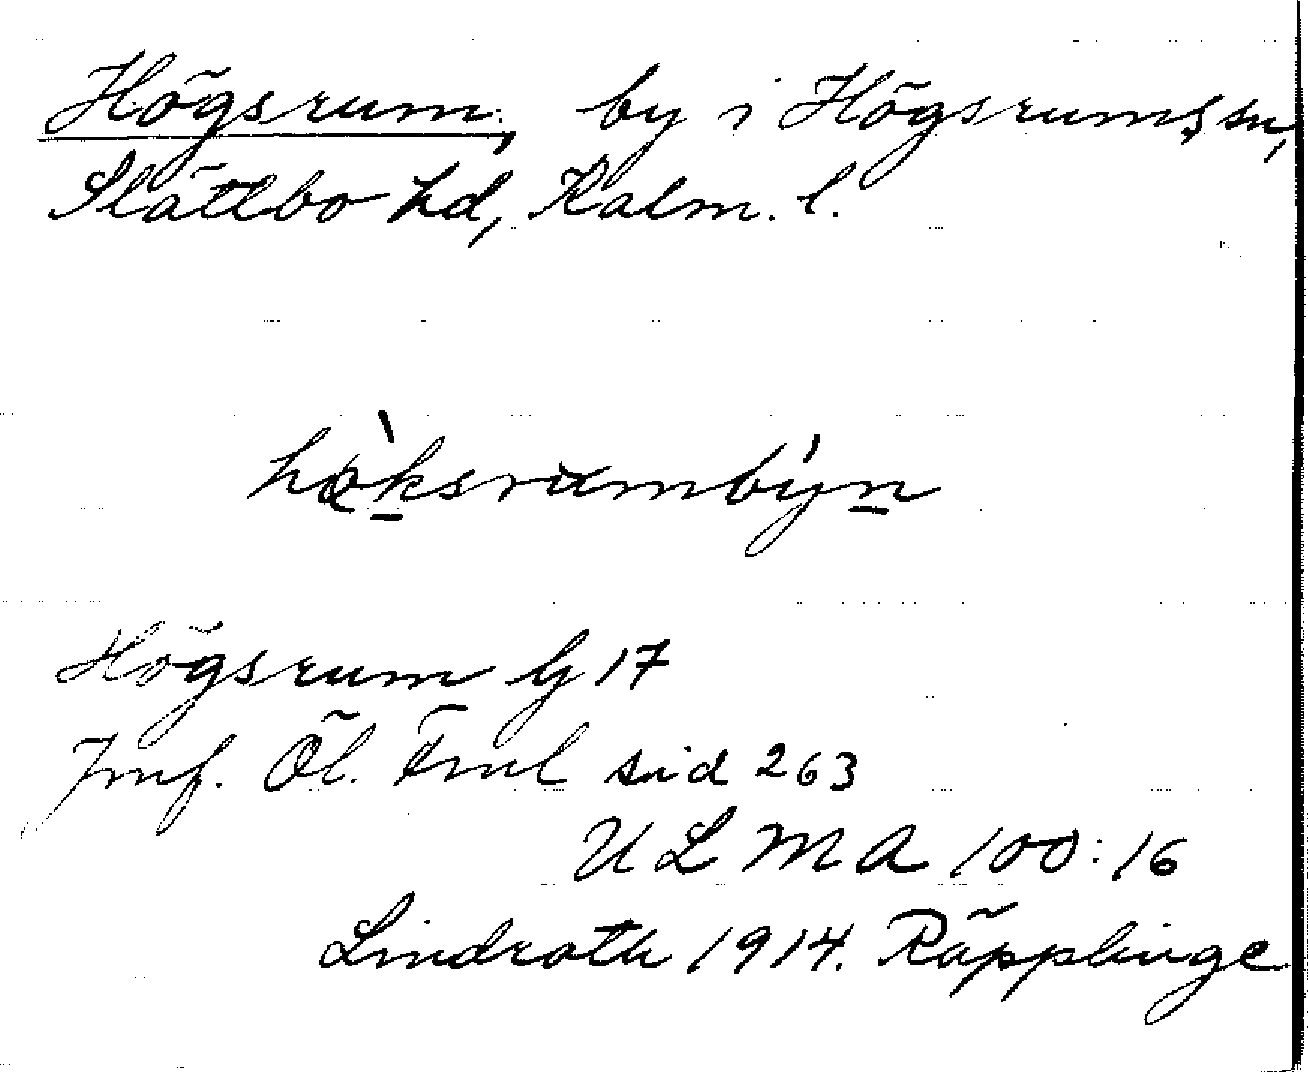 Högsrum, by i Högsrums sn,
Slättbo hd, Kalm. l.
Högsrum G 17
Jmf. Öl. Fml sid 263
ULMA 100:16
Lindroth 1914. Räpplinge